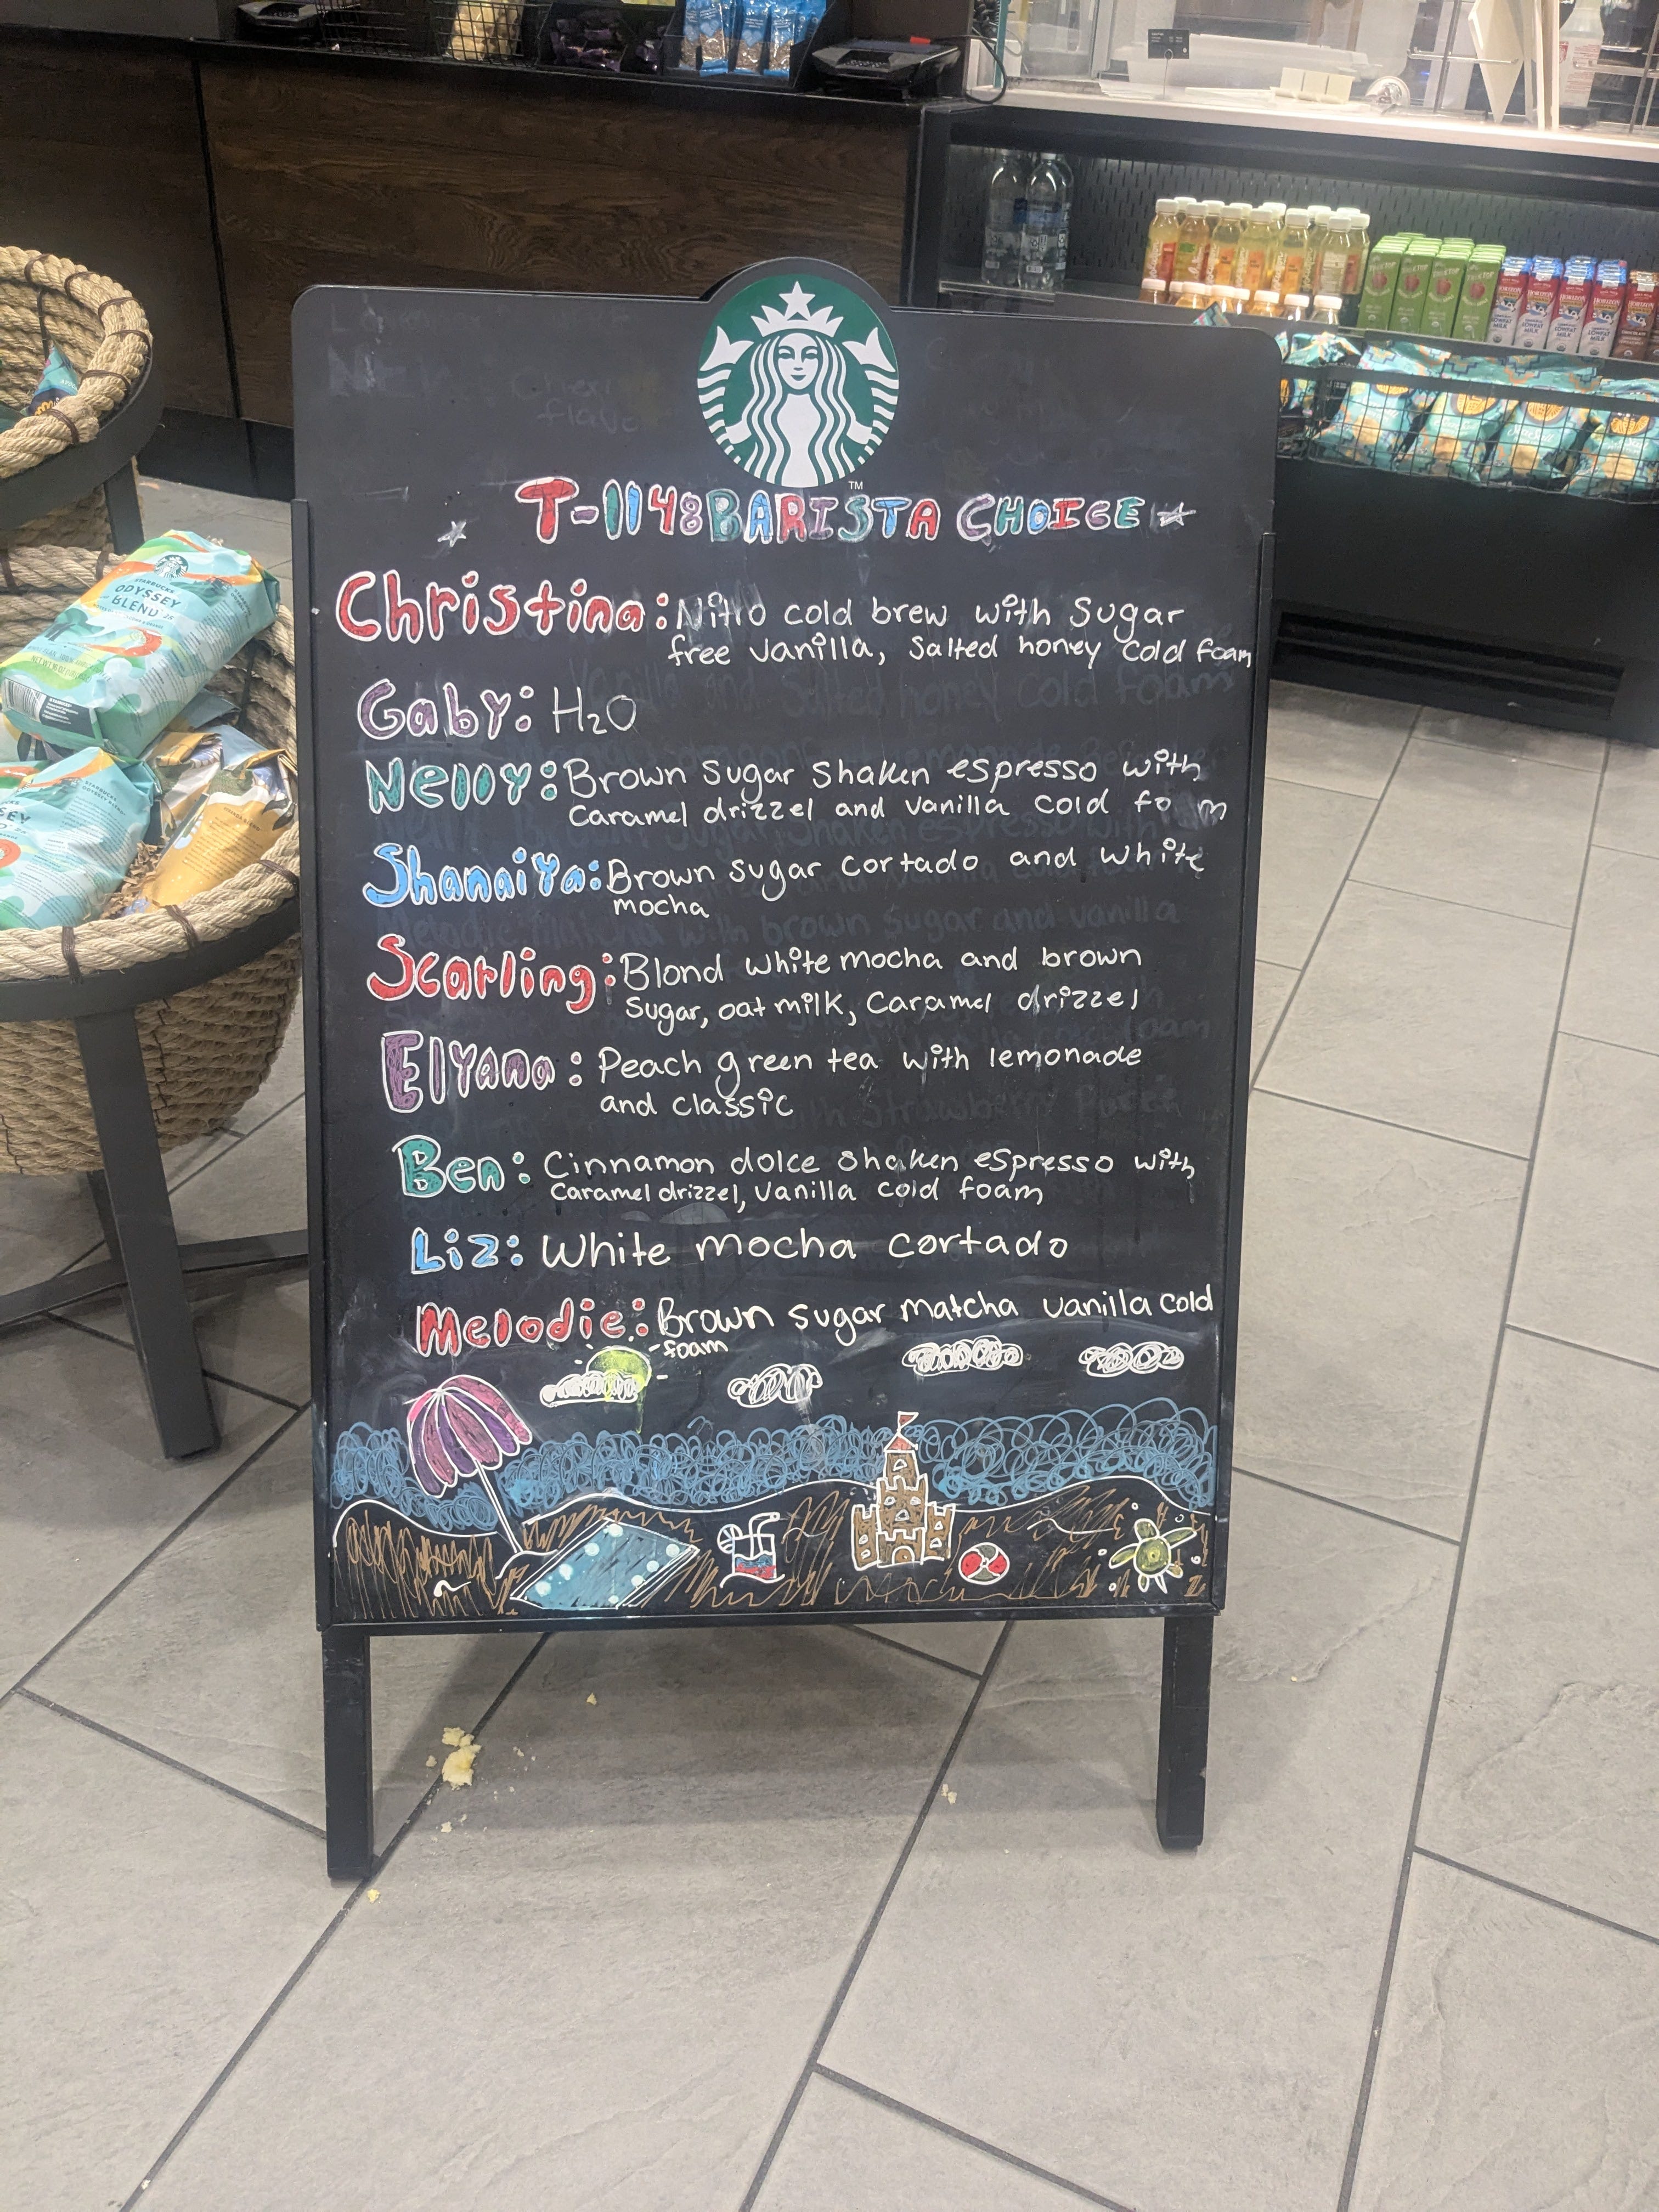 T-1148 BARISTA CHOICE
Christina: Nitro cold brew with Sugar
free vanilla, Salted honey cold foam
Gaby: H₂O
Nelly: Brown Sugar Shaken espresso with
Caramel drizzel and vanilla cold fo m
Shanaiya: Brown sugar cortado and white
mocha
Scarling: Blond white mocha and brown
Sugar, oat milk, Caramel drizzel
Elyana: Peach green tea with lemonade
and classic
Ben: Cinnamon dolce shaken espresso with
Caramel drizzel, vanilla cold foam
Liz: White mocha cortado
Melodie: Brown sugar matcha vanilla cold
foam
TM
STARBUCKS
ODYSSEY
BLEND
HORIZON
LOWFAT
MILK